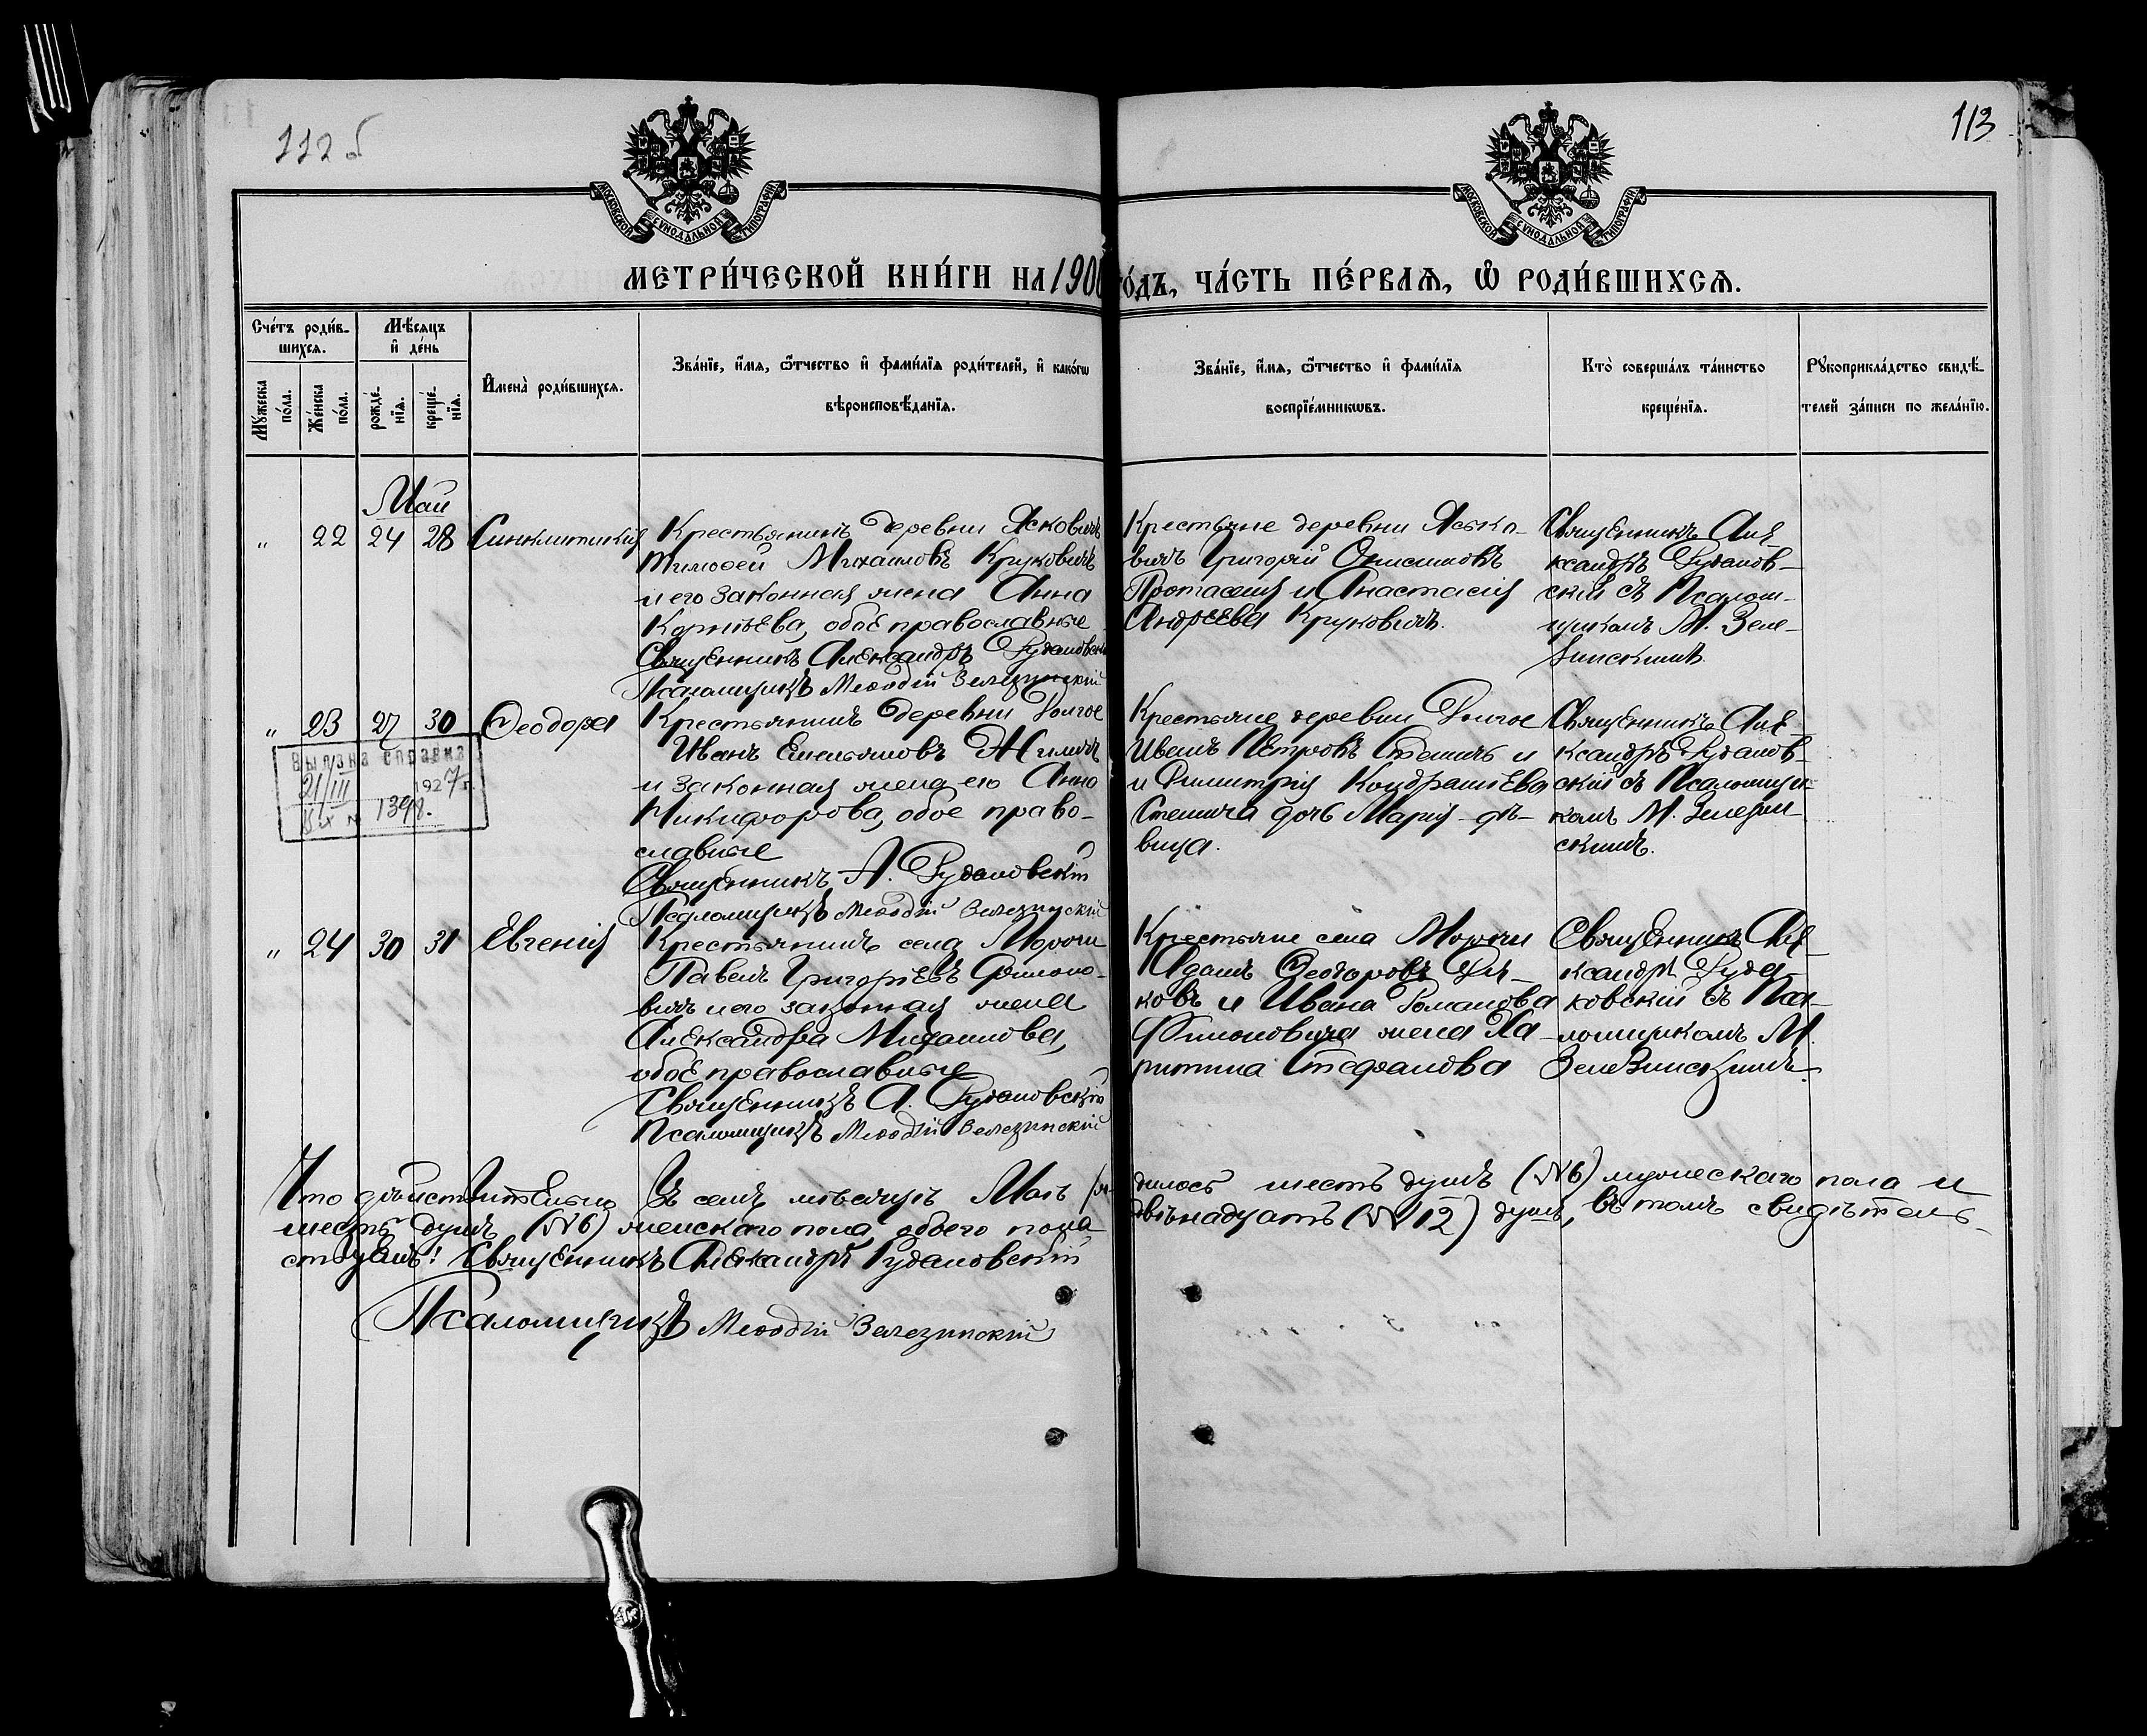 112 б
113
МОСКОВСКОЙ СѴНОДАЛЬНОЙ ТИПОГРАФІИ
МОСКОВСКОЙ СѴНОДАЛЬНОЙ ТИПОГРАФІИ
МЕТРИ́ЧЕСКОЙ КНИ́ГИ НА 190
ГО́ДЪ, ЧА́СТЬ ПЕ́РВАѦ, Ѡ҆ РОДИ́ВШИХСѦ.
Сче́тъ роди́в-
шихсѧ.
Мѣ́сѧцъ
и҆ де́нь
Мꙋ́жеска
по́ла.
Же́нска
по́ла.
рожде́-
нїѧ.
креще́-
нїѧ.
И҆мена̀ роди́вшихсѧ.
Зва́нїе, и҆́мѧ, ѻ҆́тчество и҆ фами́лїѧ роди́телей, и҆ како́гѡ
вѣроисповѣ́данїѧ.
Зва́нїе, и҆́мѧ, ѻ҆́тчество и҆ фами́лїѧ
воспрїе́мникѡвъ.
Кто̀ соверша́лъ та́инство
креще́нїѧ.
Рꙋкоприкла́дство свидѣ́-
телей за́писи по жела́нїю.
Май
" 22 24 28 Синклитикія
Крестьянинъ деревни Ясковичъ
Тимоѳей Михаиловъ Круковичъ
и его законная жена Анна
Корнѣева, обое православные
Священникъ Александръ Рудановскій
Псаломщикъ Меѳодій Зелезинскій
Крестьяне деревни Яско-
вичъ Григорій Онисимовъ
Протасеня и Анастасія
Андреева Круковичъ.
Священникъ Але-
ксандръ Руданов-
скій съ Псалом-
щикомъ М. Зеле-
зинскимъ.
" 23 27 30 Ѳеодора
Крестьянинъ деревни Долгое
Иванъ Емельяновъ Жиличъ
и законная жена его Анна
Никифорова, обое право-
славные
Священникъ А. Рудановскій
Псаломщикъ Меѳодій Зелезинскій
Крестьяне деревни Долгое
Иванъ Петровъ Стешичъ и
и Димитрія Кондратьева
Стешича дочь Марія - дѣ-
вица.
Священникъ Але-
ксандръ Руданов-
скій съ Псаломщи-
комъ М. Зелезин-
скимъ.
Выдана справка
21/III 1927 г.
Вих № 1398.
" 24 30 31 Евгенія
Крестьянинъ села Морочи
Павелъ Григорьевъ Филоно-
вичъ и его законная жена
Александра Михаилова,
обое православные
Священникъ А. Рудановскій
Псаломщикъ Меѳодій Зелезинскій
Крестьяне села Морочи
Адамъ Ѳеодоровъ
ковъ и Ивана Романова
Филоновича жена Ха-
ритина Стефанова
Священникъ Але-
ксандръ Руда-
новскій съ Пса-
ломщикомъ М.
Зелезинскимъ.
Что дѣйствительно въ семъ мѣсяцѣ Маѣ ро-
дилось шесть душъ (№ 6) мужескаго пола и
шесть душъ (№ 6) женскаго пола, обоего пола
двѣнадцать (№ 12) душъ, въ томъ свидѣтель-
ствуемъ: Священникъ Александръ Рудановскій
Псаломщикъ Меѳодій Зелезинскій